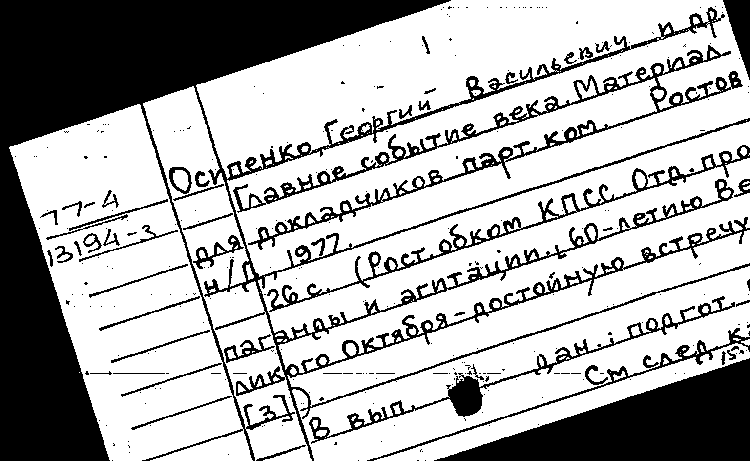 1
Осипенко, Георгий Васильевич и др.
Главное событие века. Материал
для докладчиков парт. ком. Ростов
н/Д, 1977.
26 с. (Рост. обком КПСС. Отд. про
паганды и агитации. 60-летию Ве
ликого Октября - достойную встречу
[3]).
В вып. дан.: подгот.
См след. к
77-4
13194-3